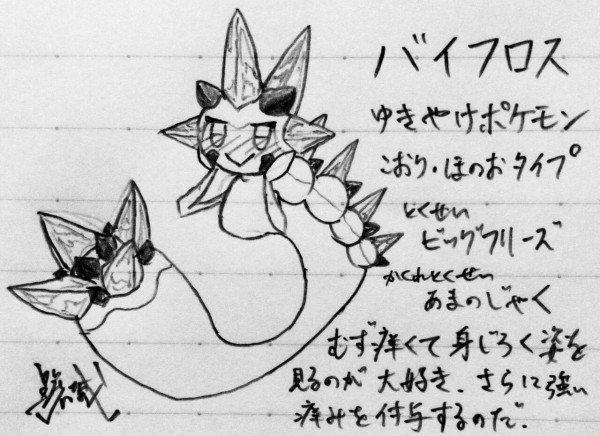 バイフロス
ゆきやけポケモン
こおり・ほのおタイプ
とくせい
ビッグフリーズ
かくれとくせい
あまのじゃく
むず痒くて身じろぐ姿を
見るのが大好き。さらに強い
痒みを付与するのだ。